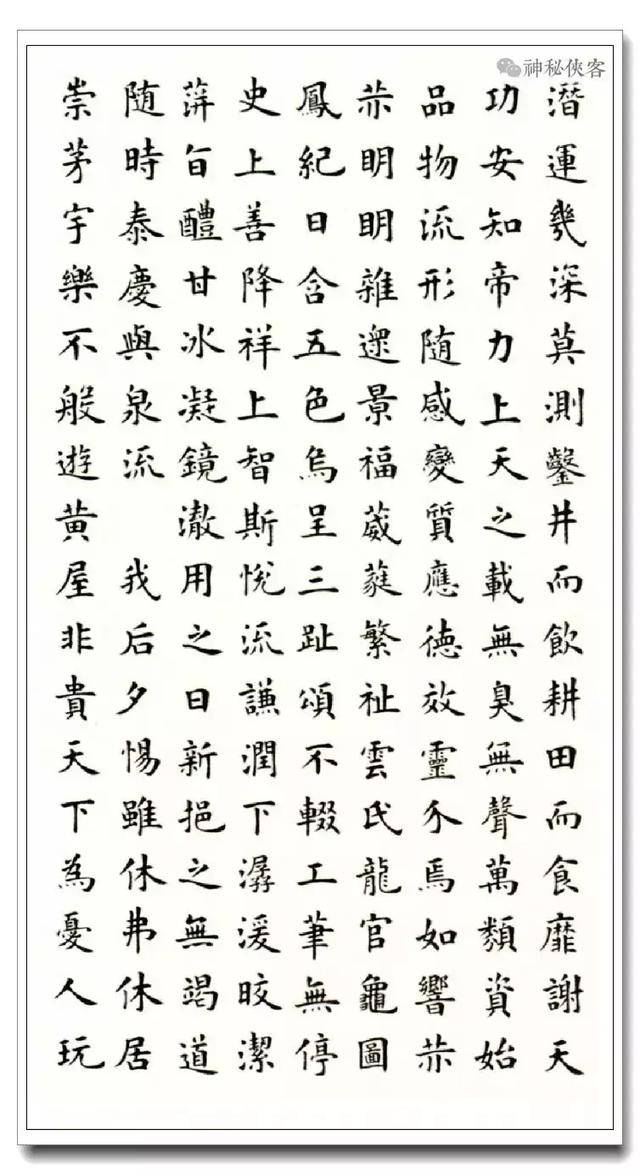 神秘俠客
潛運幾深莫測鑿井而飲耕田而食靡謝天
功安知帝力上天之載無臭無聲萬類資始
品物流形随感變質應德效靈介焉如響赤
赤明明雜遝景福葳蕤繁祉雲氏龍官龜圖
鳳紀日含五色烏呈三趾頌不輟工筆無停
史上善降祥上智斯悅流謙潤下潺湲晈潔
蓱旨醴甘冰凝鏡澈用之日新挹之無竭道
随時泰慶與泉流 我后夕惕雖休弗休居
崇茅宇樂不般遊黃屋非貴天下為憂人玩